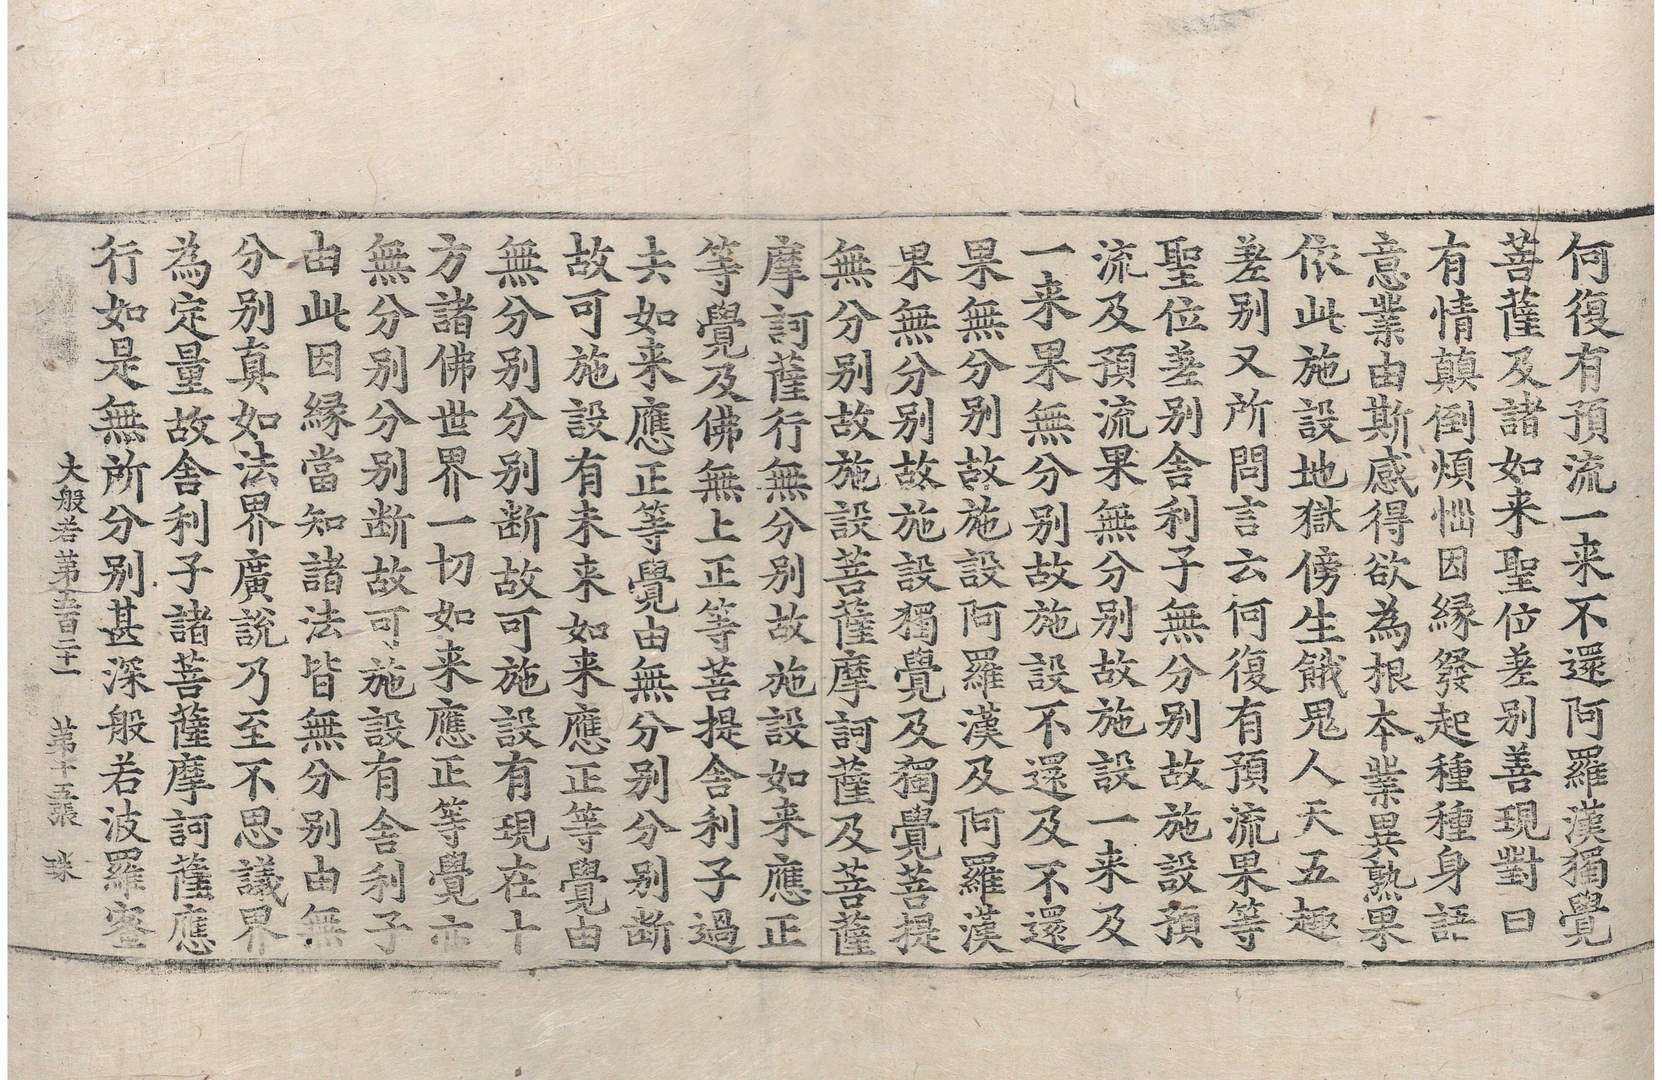 何復有預流一来不還阿羅漢獨覺
菩薩及諸如来聖位差别善現對曰
有情顛倒煩惱因縁發起種種身語
意業由斯感得欲為根本業異熟果
依此施設地獄傍生餓鬼人天五趣
差别又所問言云何復有預流果等
聖位差别舍利子無分别故施設預
流及預流果無分别故施設一来及
一来果無分别故施設不還及不還
果無分别故施設阿羅漢及阿羅漢
果無分别故施設獨覺及獨覺菩提
無分别故施設菩薩摩訶薩及菩薩
摩訶薩行無分别故施設如来應正
等覺及佛無上正等菩提舍利子過
去如来應正等覺由無分别分别断
故可施設有未来如来應正等覺由
無分别分别断故可施設有現在十
方諸佛世界一切如来應正等覺亦
無分别分别断故可施設有舍利子
由此因縁當知諸法皆無分别由無
分别真如法界廣說乃至不思議界
為定量故舍利子諸菩薩摩訶薩應
行如是無所分别甚深般若波羅蜜
大般若第五百二十一 第十五張 珠